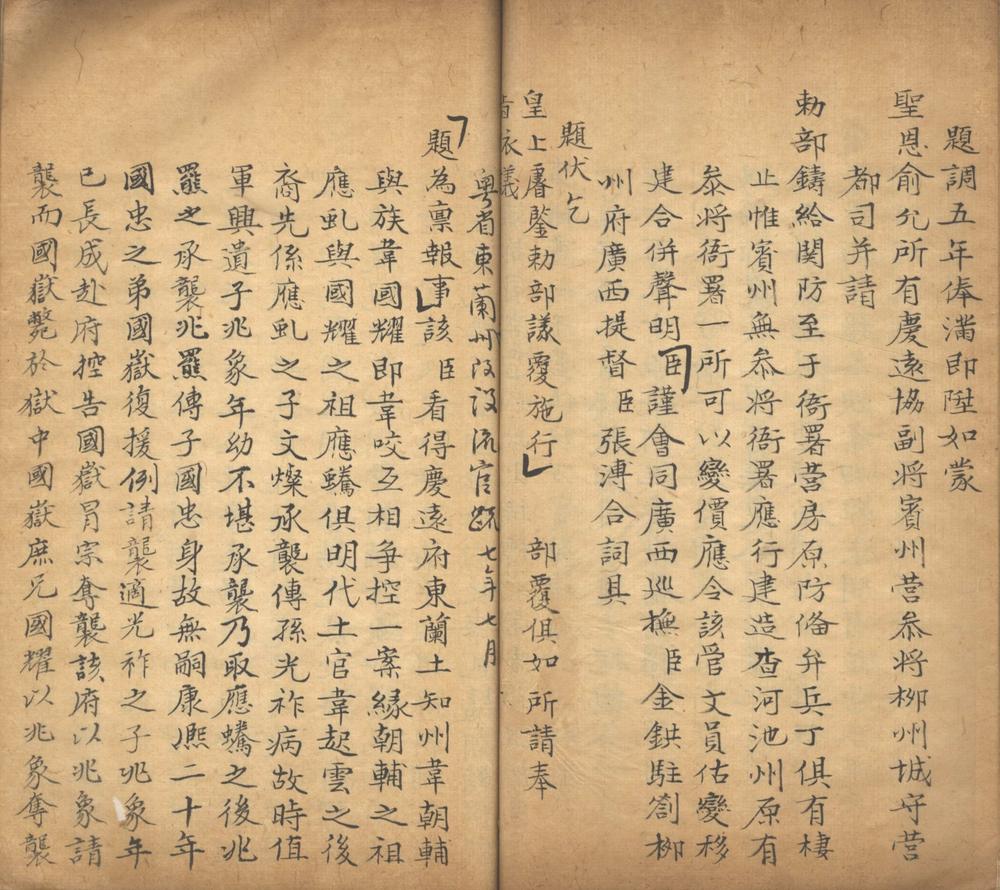 題調五年俸滿即陞如蒙
聖恩俞允所有慶遠協副將賓州营叅將柳州城守营
都司并請
勅部鑄給関防至于衙署营房原防俻弁兵丁俱有棲
止惟賓州無叅將衙署應行建造查河池州原有
叅將衙署一所可以變價應令該管文員估變移
建合併聲明臣謹會同廣西巡撫臣金鉷駐劄柳
州府廣西提督臣張溥合詞具
題伏乞
皇上睿鑒勅部議覆施行 部覆俱如所請奉
旨依議
粵省東蘭州改設流官疏 七年七月
題為稟報事該臣看得慶遠府東蘭土知州韋朝輔
與族韋國耀即韋咬互相爭控一案緣朝輔之祖
應虬與國耀之祖應驣俱明代土官韋起雲之後
裔先係應虬之子文燦承襲傳孫光祚病故時值
軍興遺子兆象年幼不堪承襲乃取應驣之後兆
羆之承襲兆羆傳子國忠身故無嗣康熈二十年
國忠之弟國嶽復援例請襲適光祚之子兆象年
已長成赴府控告國嶽冐宗奪襲該府以兆象請
襲而國嶽斃於獄中國嶽庶兄國耀以兆象奪襲